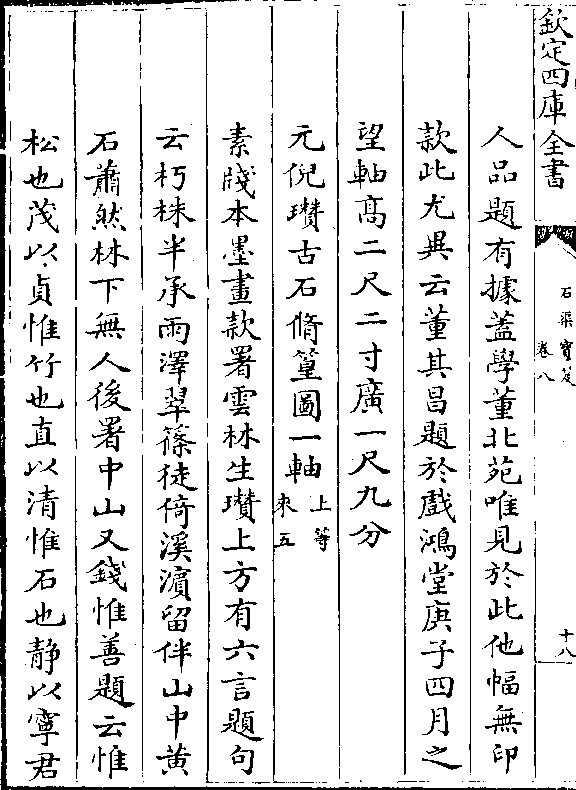 欽定四庫全書
石渠寳笈
卷八
十八
人品題有據蓋學董北苑唯見於此他幅無印
款此尤異云董其昌題於戲鴻堂庚子四月之
望軸髙二尺二寸廣一尺九分
元倪瓚古石脩篁圖一軸 上等 來五
素牋本墨畫款署雲林生瓚上方有六言題句
云朽株半承雨澤翠篠徒倚溪濵留伴山中黄
石蕭然林下無人後署中山又錢惟善題云惟
松也茂以貞惟竹也直以清惟石也静以寧君